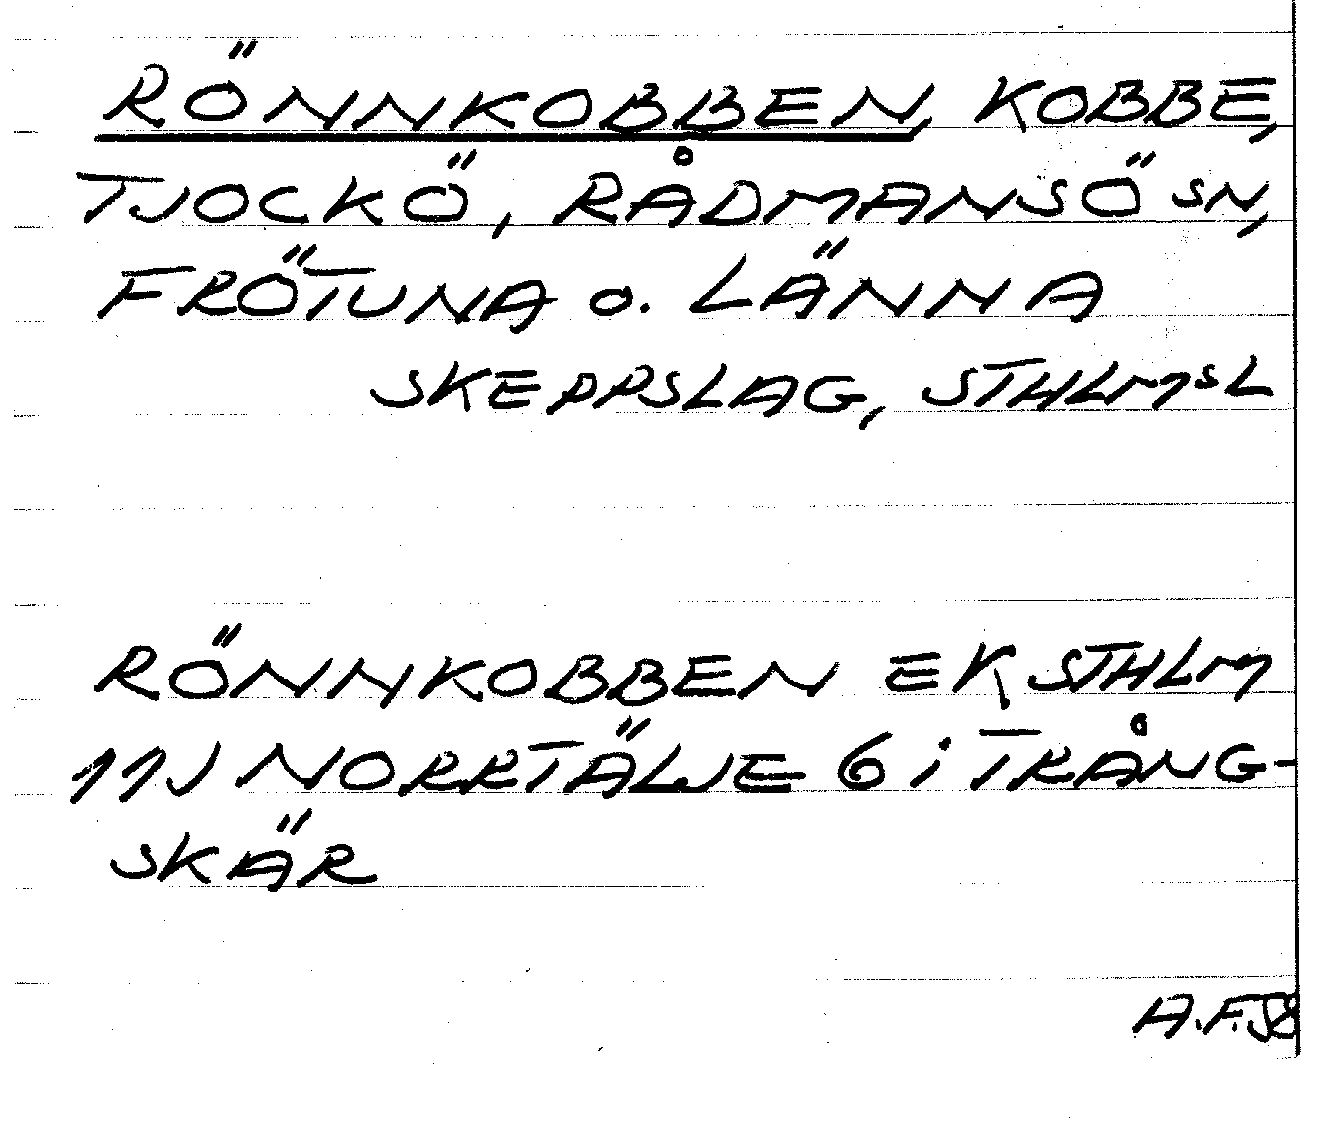 RÖNNKOBBEN, KOBBE,
TJOCKÖ, RÅDMANSÖ SN,
FRÖTUNA O. LÄNNA
SKEPPSLAG, STHLMSL
RÖNNKOBBEN EK STHLM
11J NORRTÄLJE 6 i TRÅNG-
SKÄR
A.F.58